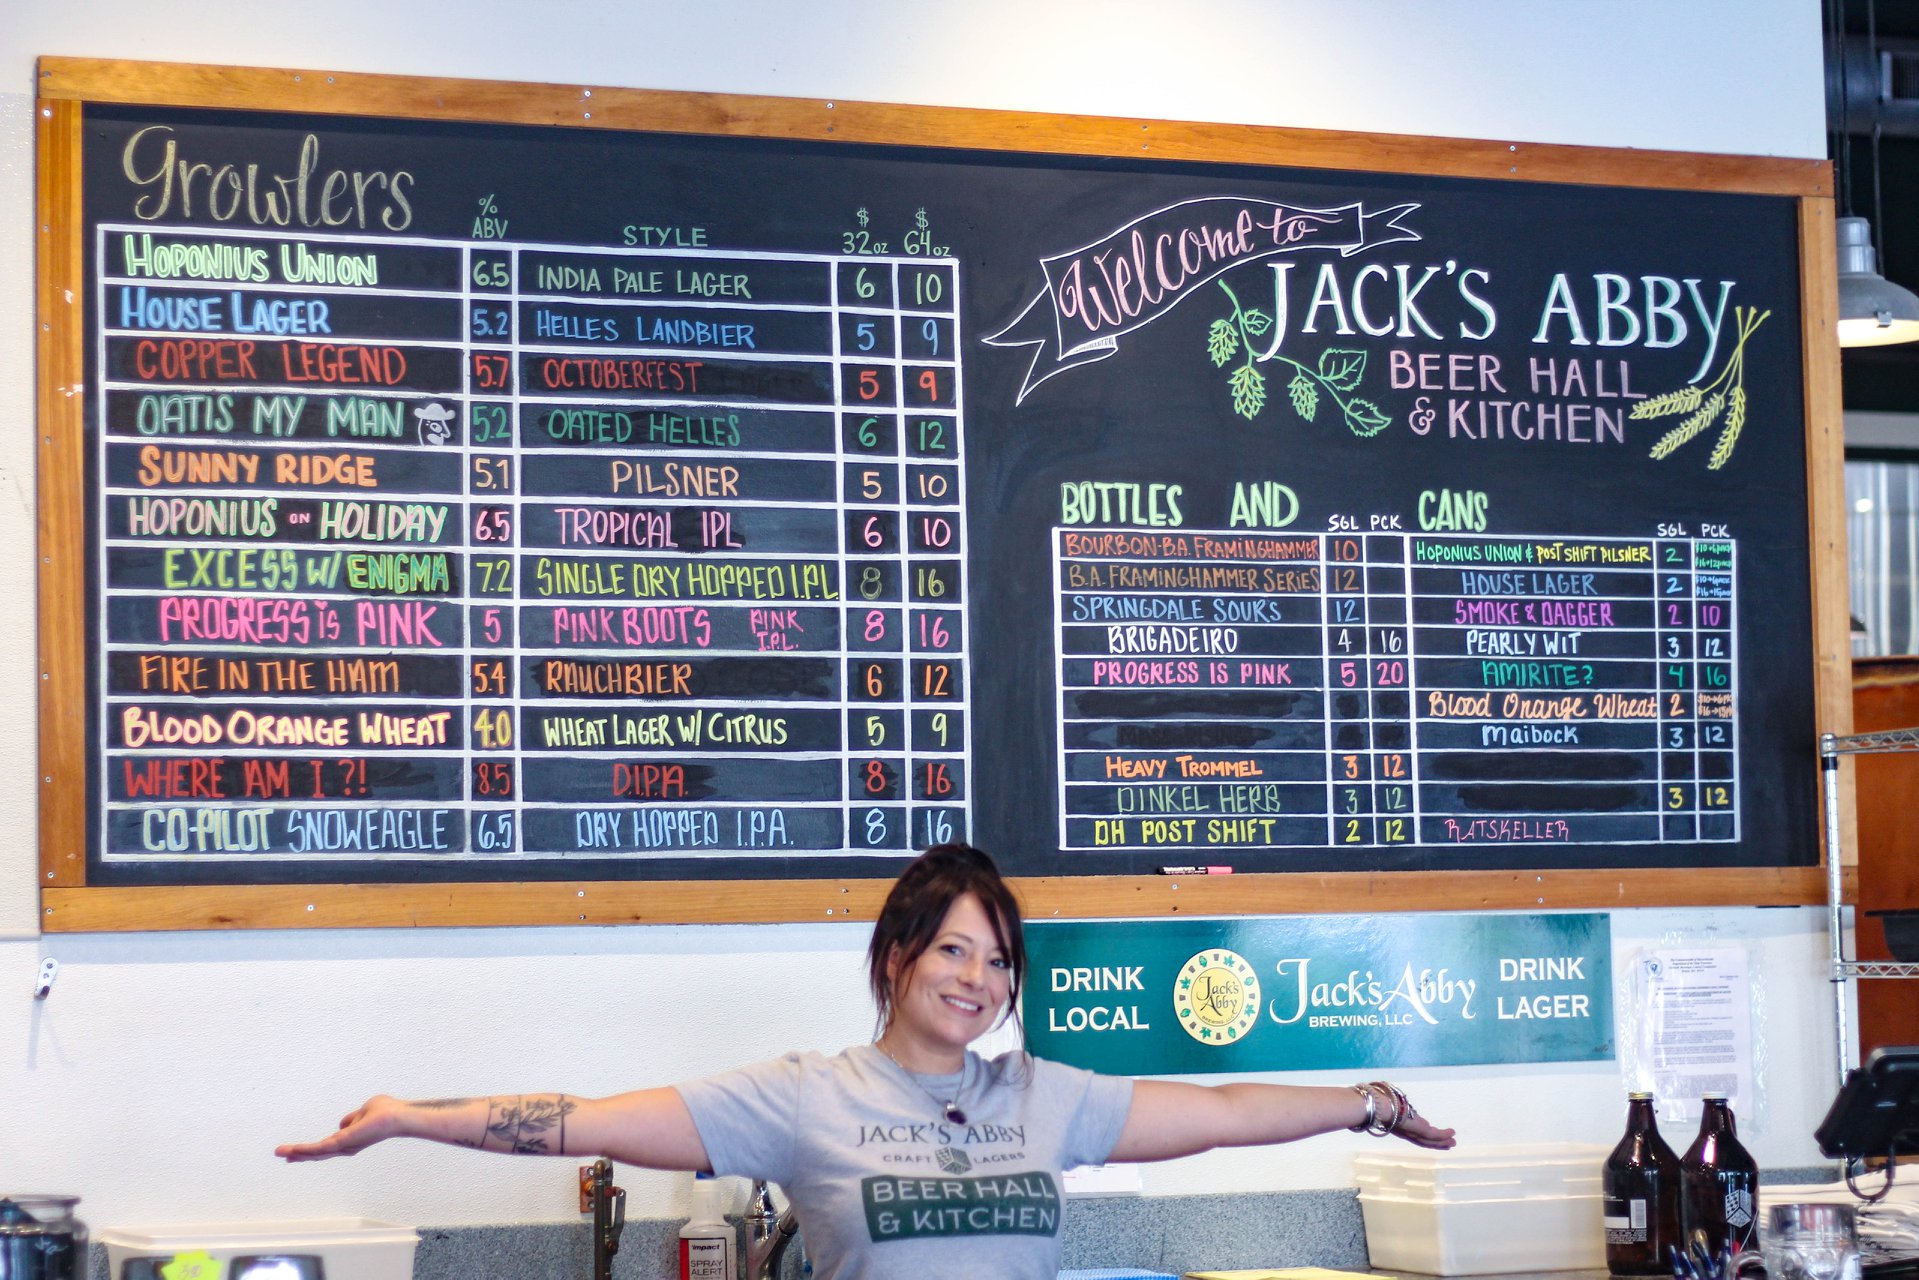 Growlers
% ABV STYLE $ 32oz $ 64oz
HOPONIUS UNION 6.5 INDIA PALE LAGER 6 10
HOUSE LAGER 5.2 HELLES LANDBIER 5 9
COPPER LEGEND 5.7 OCTOBERFEST 5 9
OATIS MY MAN 5.2 OATED HELLES 6 12
SUNNY RIDGE 5.1 PILSNER 5 10
HOPONIUS ON HOLIDAY 6.5 TROPICAL IPL 6 10
EXCESS W/ ENIGMA 7.2 SINGLE DRY HOPPED I.P.L 8 16
PROGRESS is PINK 5 PINK BOOTS PINK I.P.L. 8 16
FIRE IN THE HAM 5.4 RAUCHBIER 6 12
BLOOD ORANGE WHEAT 4.0 WHEAT LAGER W/ CITRUS 5 9
WHERE AM I?! 8.5 D.I.P.A. 8 16
CO-PILOT SNOWEAGLE 6.5 DRY HOPPED I.P.A. 8 16
Welcome to
JACK'S ABBY
BEER HALL
& KITCHEN
BOTTLES AND CANS
SGL PCK
BOURBON-B.A. FRAMINGHAMMER 10
B.A. FRAMINGHAMMER SERIES 12
SPRINGDALE SOURS 12
BRIGADEIRO 4 16
PROGRESS IS PINK 5 20
HEAVY TROMMEL 3 12
DINKEL HERB 3 12
DH POST SHIFT 2 12
SGL PCK
HOPONIUS UNION & POST SHIFT PILSNER 2
HOUSE LAGER 2
SMOKE & DAGGER 2 10
PEARLY WIT 3 12
AMIRITE? 4 16
Blood Orange Wheat 2
Maibock 3 12
3 12
RATSKELLER
DRINK
LOCAL
Jack's
Abby
BREWING, LLC
Jack's Abby
BREWING, LLC
DRINK
LAGER
JACK'S ABBY
CRAFT LAGERS
BEER HALL
& KITCHEN
impact
SPRAY
ALERT